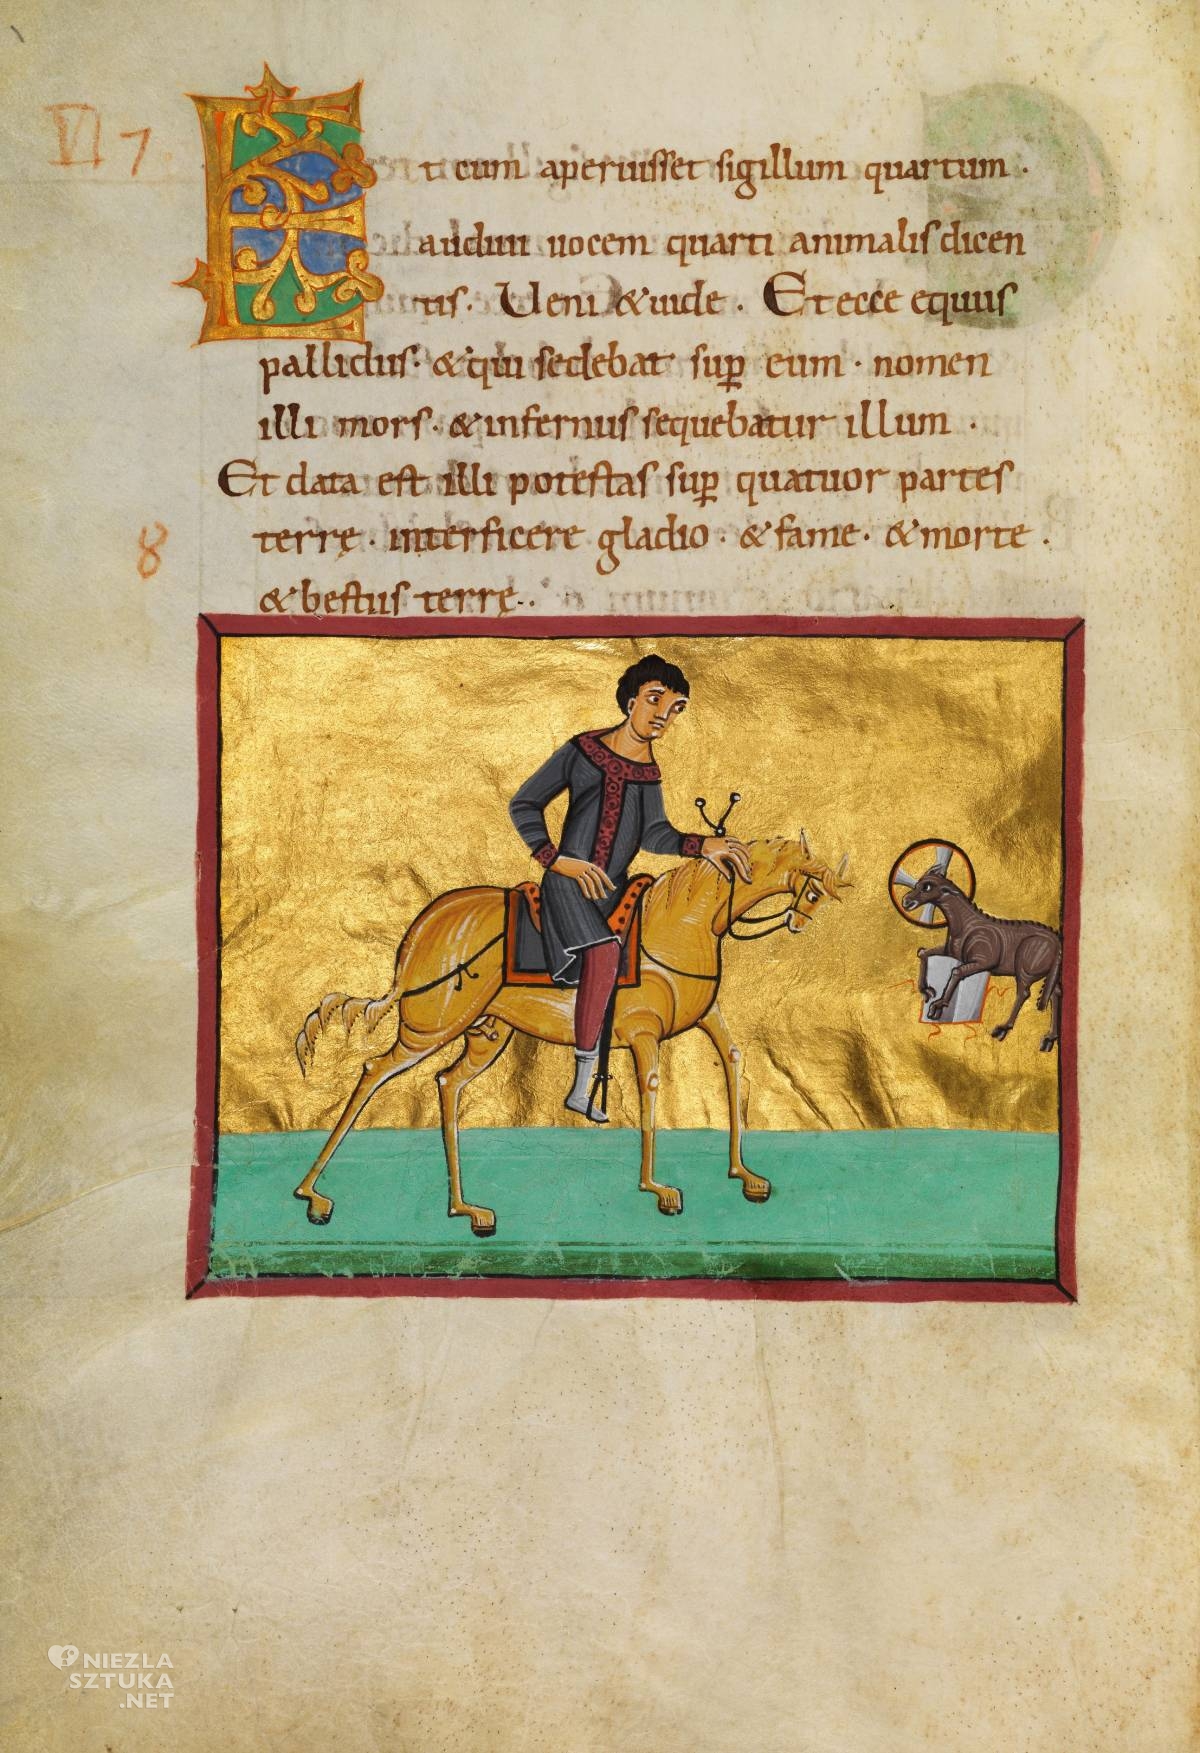 VI 7.
Et cum aperuisset sigillum quartum ·
audiui uocem quarti animalis dicen
tis. Ueni & uide . Et ecce equus
pallidus. & qui sedebat sup̱ eum · nomen
illi mors. & infernus sequebatur illum .
Et data est illi potestas sup̱ quatuor partes
terrę . interficere gladio . & fame . & morte .
8
& bestiis terrę..
NIEZLA
SZTUKA
.NET